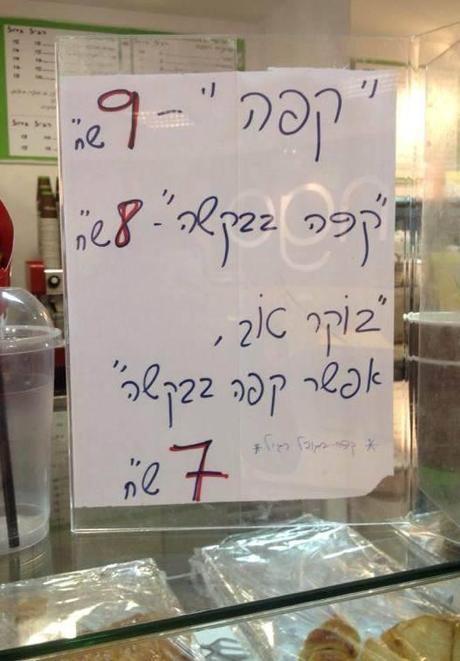 "קפה" - 9 ש"ח
"קפה בבקשה" - 8 ש"ח
"בוקר טוב,
אפשר קפה בבקשה"
* קפה בגודל רגיל *
7 ש"ח